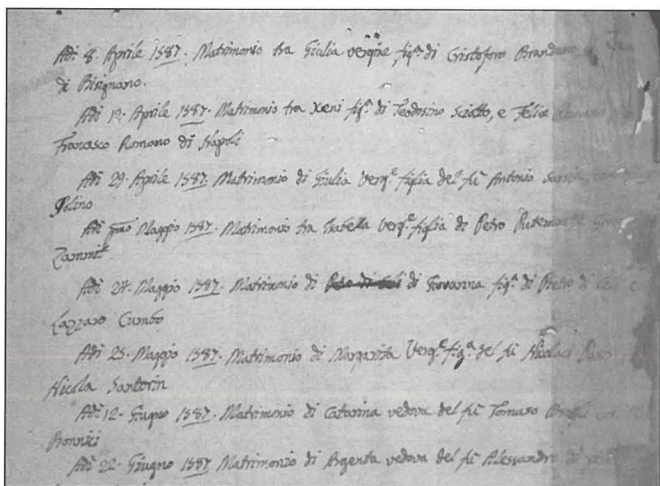 Adi 8. Aprile 1587. Matrimonio tra Giulia vergine, figª. di Cristoforo Branduno
di Bisignano.
Adi 12. Aprile 1587. Matrimonio tra Xeni figª. di Teodosino Sciatto, e Felice Romano
Francesco Romano di Napoli
Adi 29. Aprile 1587. Matrimonio di Giulia Vergª. figlia del fù Antonio
Adi pmo Maggio 1587. Matrimonio tra Isabella Vergª. figlia di Petro
Zammit
Adi 24. Maggio 1587. Matrimonio di di Giovanna figª. di Pietro di
Lazzaro Cumbo
Adi 25. Maggio 1587. Matrimonio di Margarita Vergª. figª. del fù Nicolaci
Nicola Santorin
Adi 12. Giugno 1587. Matrimonio di Catarina vedova del fù Tomaso
Bonnici
Adi 22. Giugno 1587 Matrimonio di Argenta vedova del fù Alessandro di